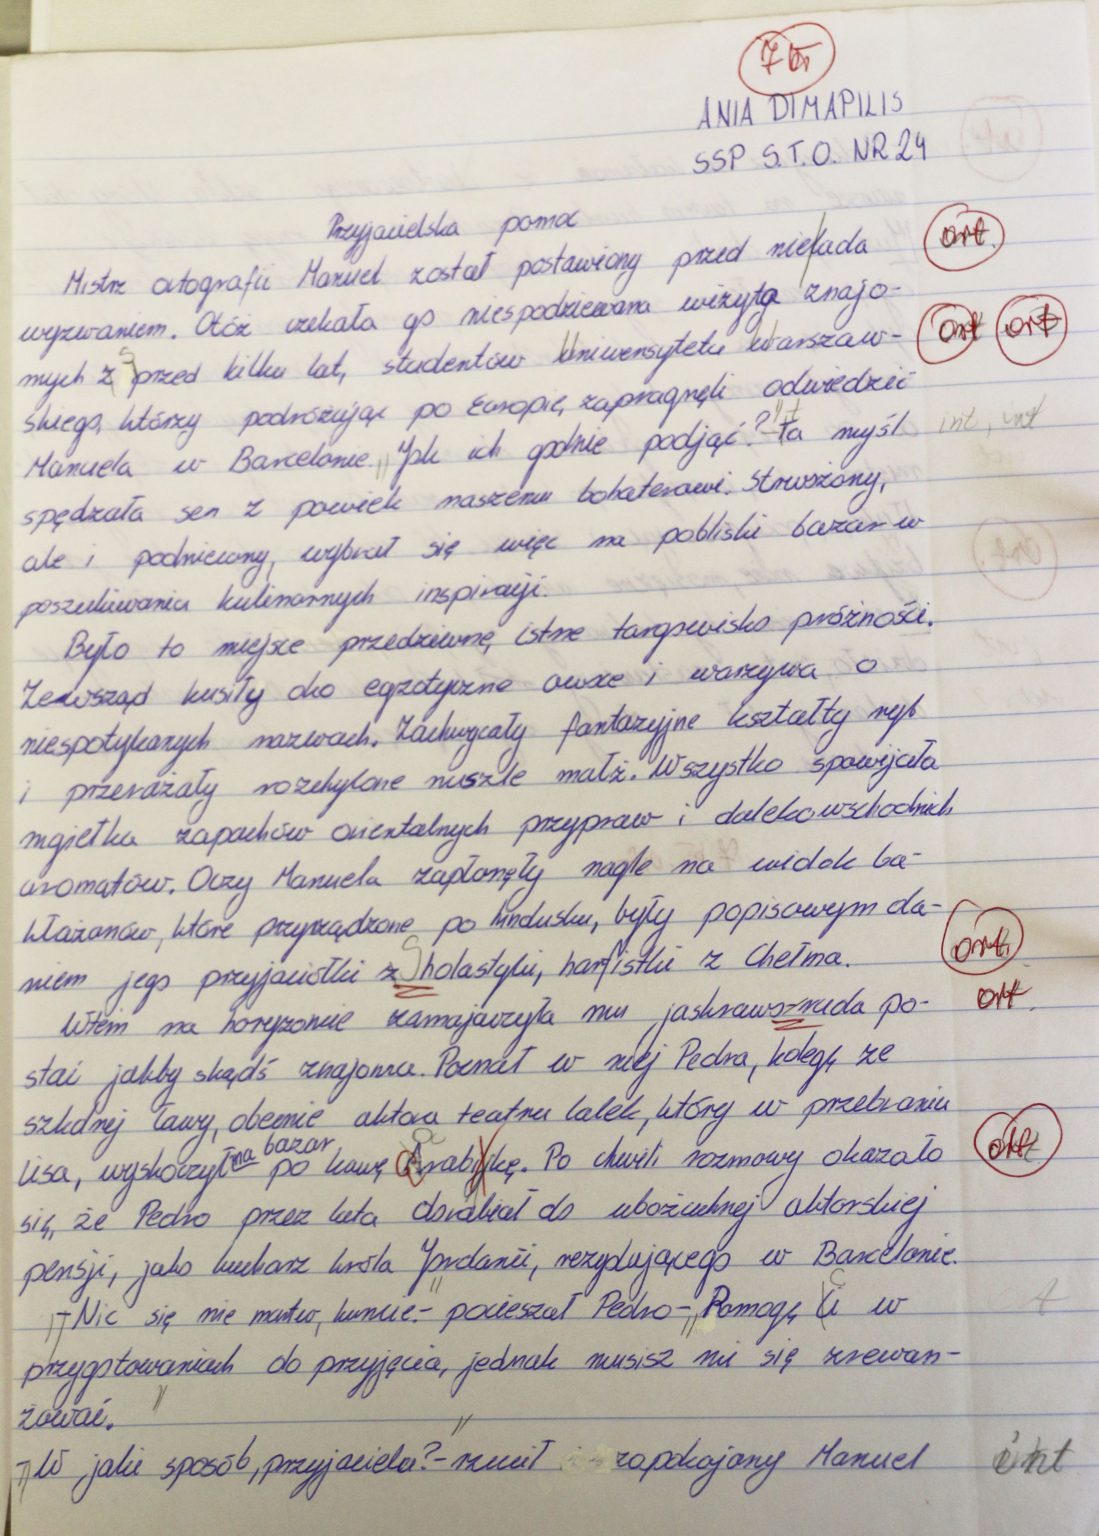 7 br
ANIA DIMAPILIS
SSP S.T.O. NR 24
Przyjacielska pomoc
Mistrz ortografii Manuel został postawiony przed nielada ort.
wyzwaniem. Otóż czekała go niespodziewana wizyta znajo-
mych z przed kilku lat, studentów Uniwersytetu Warszaw- ort ort
skiego, którzy podróżując po Europie, zapragnęli odwiedzić
Manuela w Barcelonie. "Jak ich godnie podjąć?" - ta myśl int, int
spędzała sen z powiek naszemu bohaterowi. Strwożony,
ale i podniecony, wybrał się więc na pobliski bazar w
poszukiwaniu kulinarnych inspiracji.
Było to miejsce przedziwne, istne targowisko próżności.
Zewsząd kusiły oko egzotyczne owoce i warzywa o
niespotykanych nazwach. Zachwycały fantazyjne kształty ryb
i przerażały rozchylone muszle małż. Wszystko spowijała
mgiełka zapachów orientalnych przypraw i dalekowschodnich
aromatów. Oczy Manuela zapłonęły nagle na widok ba-
kłażanów, które przyrządzone po hindusku, były popisowym da-
niem jego przyjaciółki z Sholastyki, harfistki z Chełma. ort.
Wtem na horyzoncie zamajaczyła mu jaskraworuda po- ort.
stać jakby skądś znajoma. Poznał w niej Pedra, kolegę ze
szkolnej ławy, obecnie aktora teatru lalek, który w przebraniu
lisa, wyskoczył na bazar po kawę Arabikę. Po chwili rozmowy okazało ort
się, że Pedro przez lata dorabiał do ubożuchnej aktorskiej
pensji, jako kucharz króla Jordanii, rezydującego w Barcelonie.
- Nic się nie martw, kumie. - pocieszał Pedro - Pomogę Ci w
przygotowaniach do przyjęcia, jednak musisz mi się zrewan-
żować.
- W jaki sposób, przyjacielu? - rzucił zaspokojony Manuel int